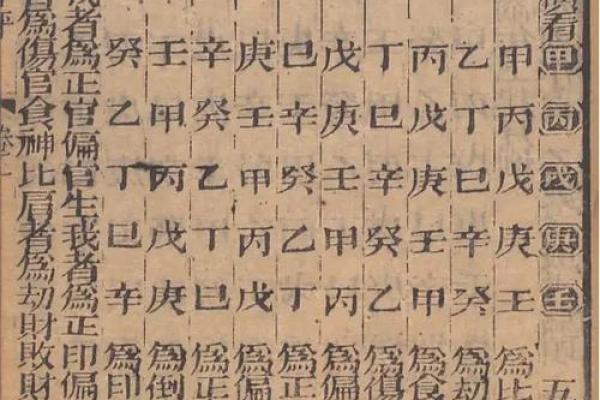 看甲丙戊庚壬五
甲丙戊庚壬爲比
乙丁巳辛癸爲劫
丙戊庚壬甲爲食
丁巳辛癸乙爲傷
戊庚壬甲丙爲偏
巳辛癸乙丁爲正
庚壬甲丙戊爲偏
辛癸乙丁巳爲正
壬甲丙戊庚爲倒
癸乙丁巳辛爲印
者爲正官偏官生我者爲正印偏
者爲傷官食神比肩者爲劫財敗財
評 卷一